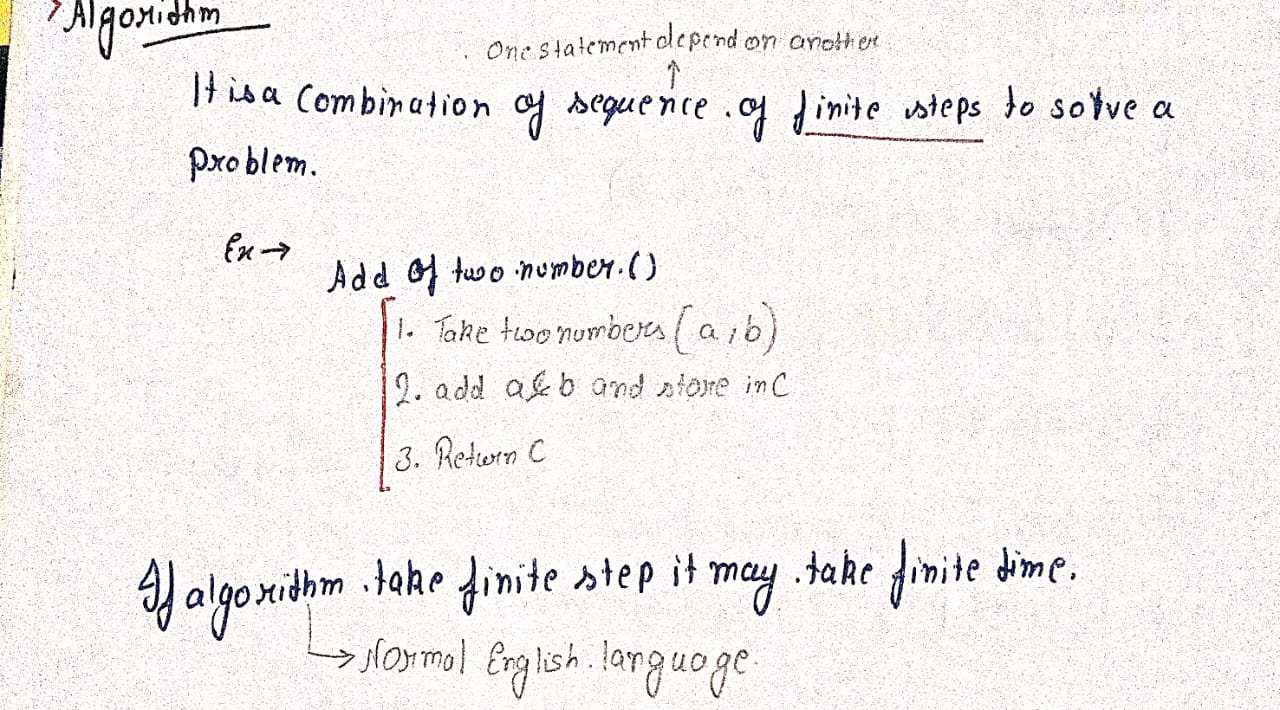 Algorithm
One statement depend on another
↑
It is a Combination of sequence of finite steps to solve a
problem.
Ex →
Add of two number.()
1. Take two numbers (a, b)
2. add a & b and store in C
3. Return C
If algorithm take finite step it may take finite time.
→ Normal English language.